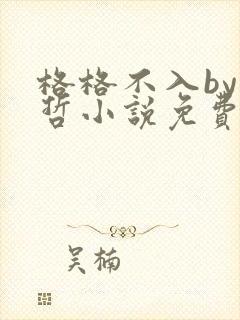 格格不入by
哲小說免費
吳楠